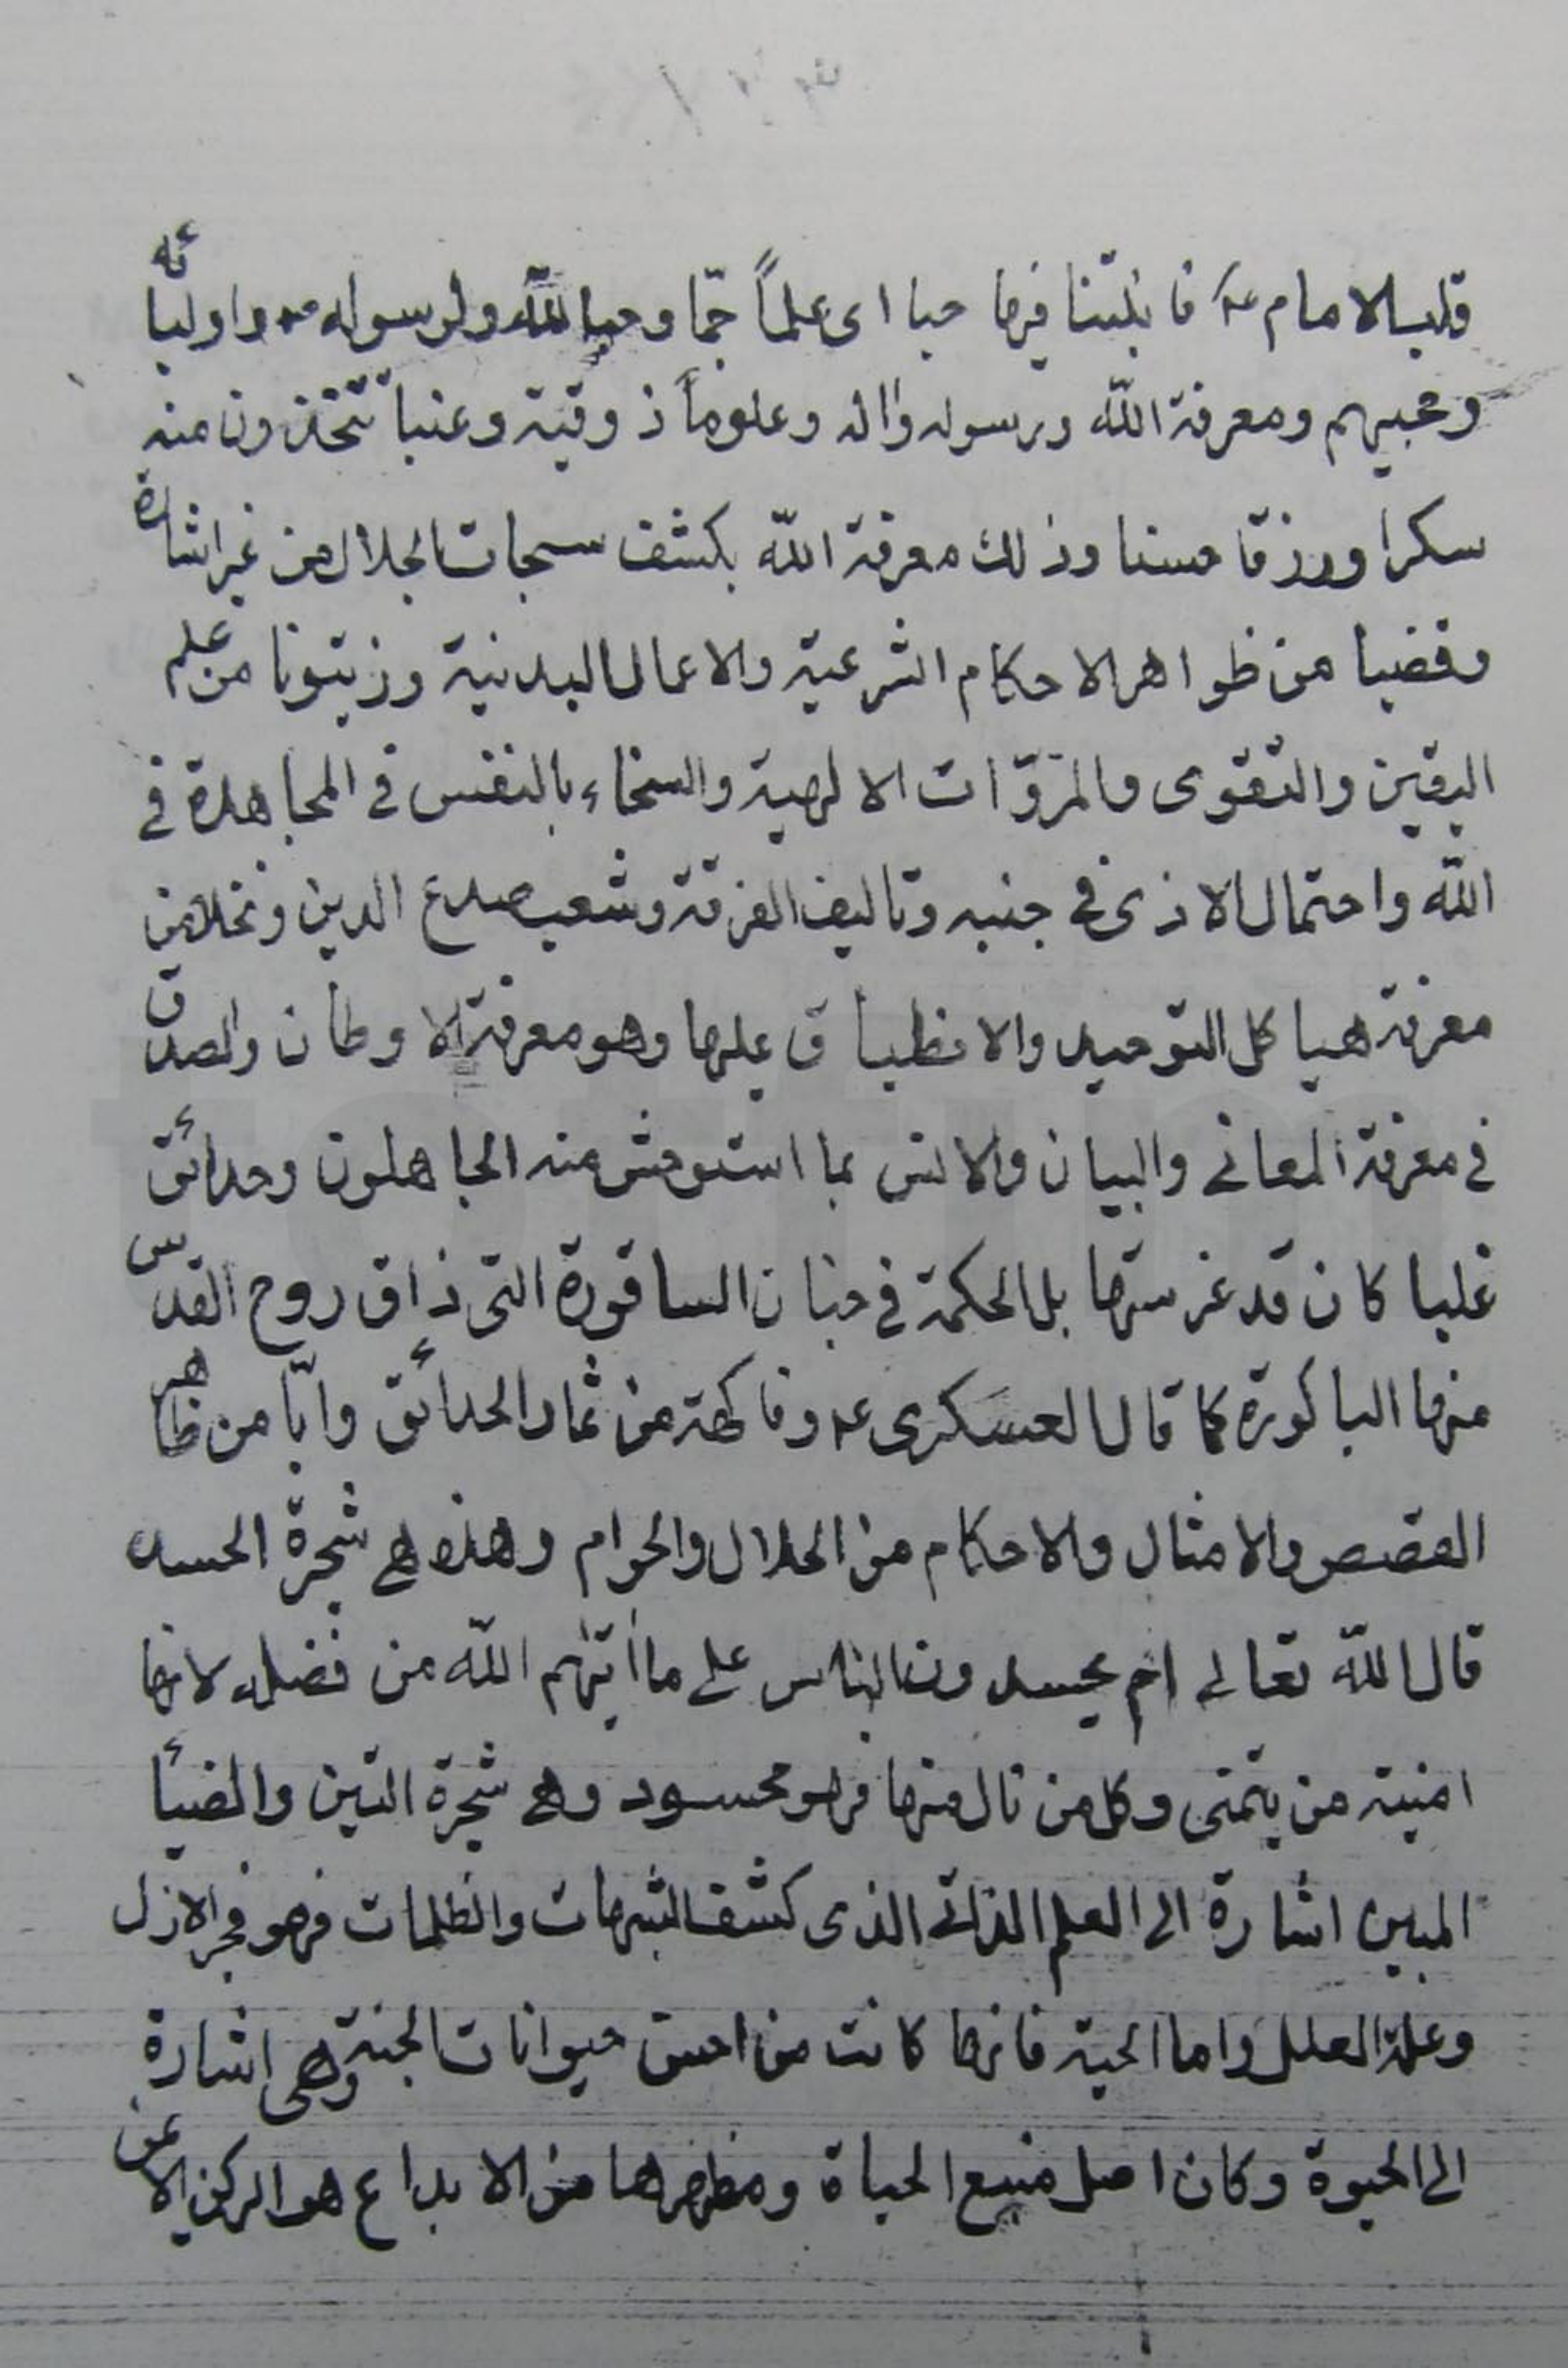 قلب الامام ع فانبتنا فيها حبا اى علماً جمّا وحبا لله ولرسوله ص واوليائه
ومحبيهم ومعرفة الله ورسوله واله وعلوماً ذوقية وعنبا تتخذون منه
سكرا ورزقا حسنا وذلك معرفة الله بكشف سبحات الجلال من غير اشارة
وقضبا من ظواهر الاحكام الشرعية والاعمال البدنية وزيتونا من علم
اليقين والتقوى والمروّات الالهية والسخاء بالنفس فى المجاهدة فى
الله واحتمال الاذى فى جنبه وتاليف الفرقة وشعب صدع الدين ونخلا من
معرفة هياكل التوحيد والانطباق عليها وهو معرفة الاوطان والصدق
فى معرفة المعانى والبيان والانس بما استوحش منه الجاهلون وحدائق
غلبا كان قد غرستها بل الحكمة فى جنان الساقورة التى ذاق روح القدس
منها الباكورة كما قال العسكرى ع وفاكهة من ثمار الحدائق وابّا من ظاهر
القصص والامثال والاحكام من الحلال والحرام وهذه هى شجرة الحسد
قال الله تعالى ام يحسدون الناس على ما اتيهم الله من فضله لانها
امنية من يتمنى وكل من نال منها فهو محسود وهى شجرة التين والضيأ
المبين اشارة الى العلم الذاتى الذى كشف الشبهات والظلمات فهو فجر الازل
وعلة العلل واما الحية فانها كانت من احسن حيوانات الجنة وهى اشارة
الى الحيوة وكان اصل منبع الحياة ومظهرها من الابداع هو الركن الايمن